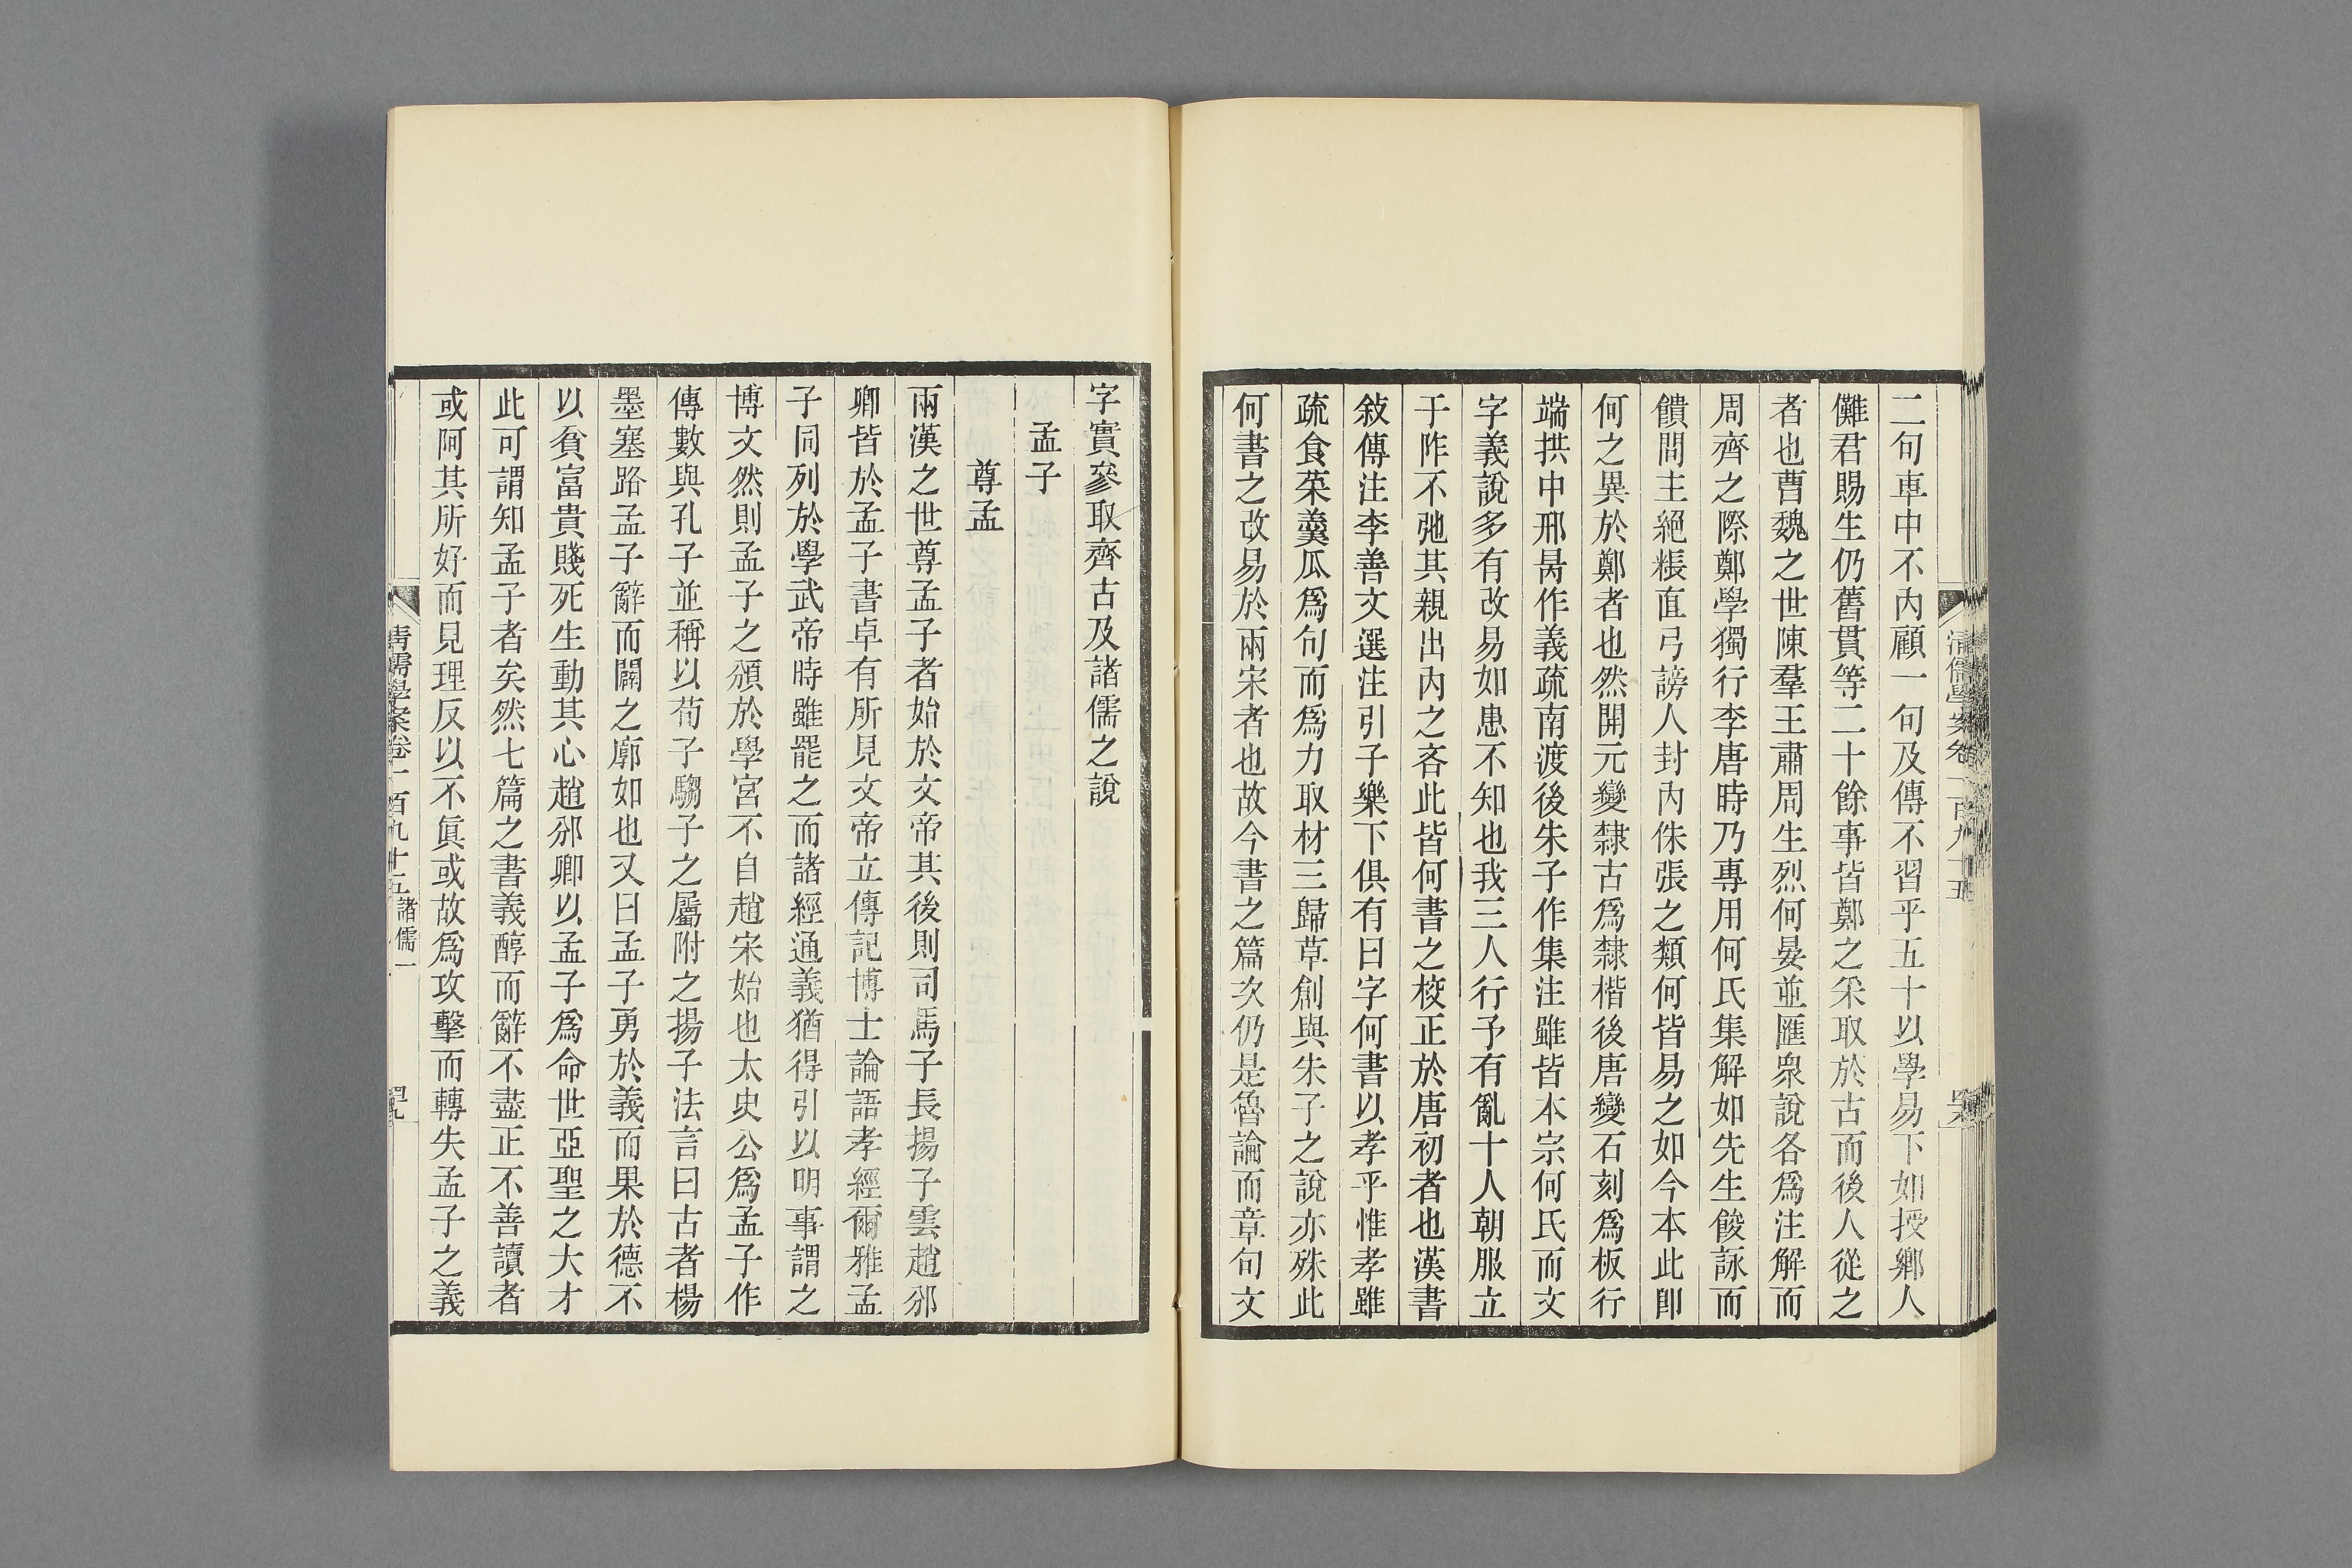 二句車中不內顧一句及傳不習乎五十以學易下如授鄉人
儺君賜生仍舊貫等二十餘事皆鄭之采取於古而後人從之
者也曹魏之世陳羣王肅周生烈何晏並匯衆說各爲注解而
周齊之際鄭學獨行李唐時乃專用何氏集解如先生餕詠而
饋問主絕糧直弓謗人封內侏張之類何皆易之如今本此卽
何之異於鄭者也然開元變隸古爲隸楷後唐變石刻爲板行
端拱中邢昺作義疏南渡後朱子作集注雖皆本宗何氏而文
字義說多有改易如患不知也我三人行予有亂十人朝服立
于阼不弛其親出內之吝此皆何書之校正於唐初者也漢書
敍傳注李善文選注引子樂下俱有曰字何書以孝乎惟孝雖
疏食菜羹瓜爲句而爲力取材三歸草創與朱子之說亦殊此
何書之改易於兩宋者也故今書之篇次仍是魯論而章句文
清儒學案卷一百九十五
字實參取齊古及諸儒之說
孟子
尊孟
兩漢之世尊孟子者始於文帝其後則司馬子長揚子雲趙邠
卿皆於孟子書卓有所見文帝立傳記博士論語孝經爾雅孟
子同列於學武帝時雖罷之而諸經通義猶得引以明事謂之
博文然則孟子之頒於學宮不自趙宋始也太史公爲孟子作
傳數與孔子並稱以荀子騶子之屬附之揚子法言曰古者楊
墨塞路孟子辭而闢之廓如也又曰孟子勇於義而果於德不
以貧富貴賤死生動其心趙邠卿以孟子爲命世亞聖之大才
此可謂知孟子者矣然七篇之書義醇而辭不盡正不善讀者
或阿其所好而見理反以不眞或故爲攻擊而轉失孟子之義
清儒學案卷一百九十五 諸儒一